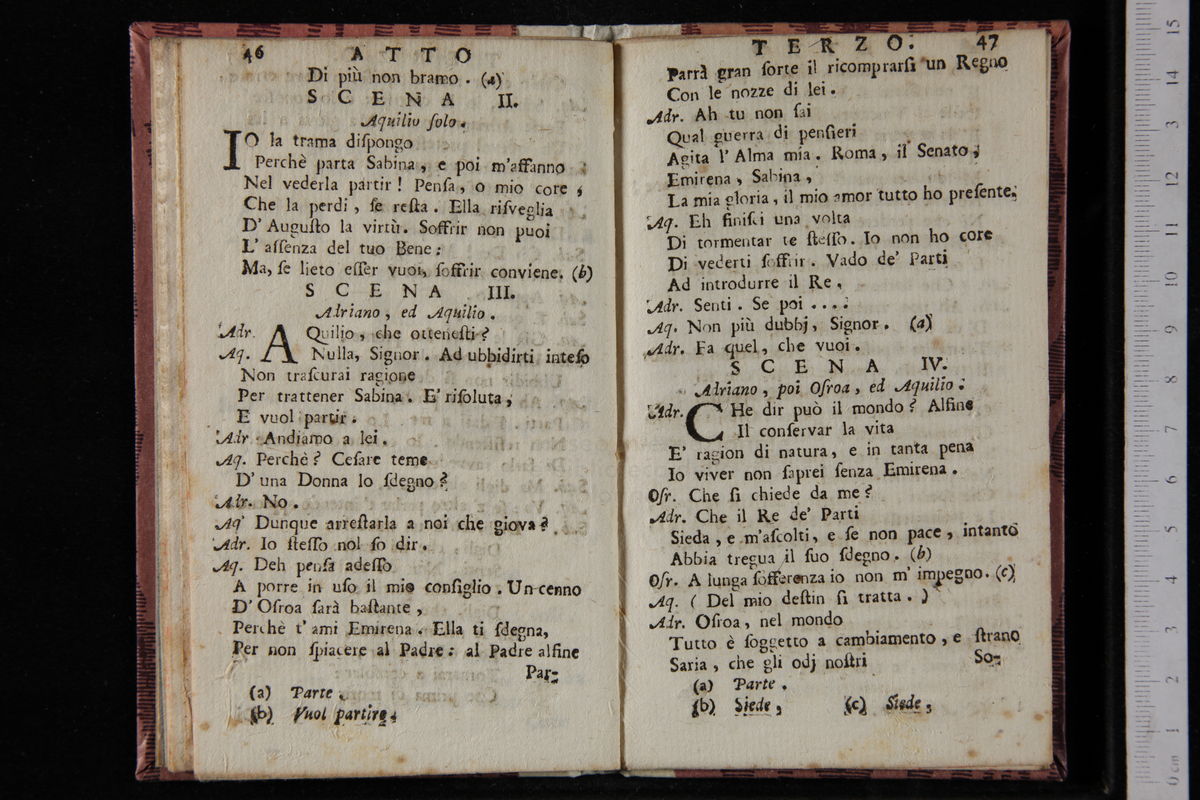 46 ATTO
Di più non bramo. (a)
SCENA II.
Aquilio ſolo.
IO la trama diſpongo
Perchè parta Sabina, e poi m'affanno
Nel vederla partir! Penſa, o mio core,
Che la perdi, ſe reſta. Ella riſveglia
D' Auguſto la virtù. Soffrir non puoi
L' aſſenza del tuo Bene:
Ma, ſe lieto eſſer vuoi, ſoffrir conviene. (b)
SCENA III.
Adriano, ed Aquilio.
Adr. AQuilio, che otteneſti?
Aq. Nulla, Signor. Ad ubbidirti inteſo
Non traſcurai ragione
Per trattener Sabina. E' riſoluta,
E vuol partir.
Adr Andiamo a lei.
Aq. Perchè? Ceſare teme
D' una Donna lo ſdegno?
Adr. No.
Aq' Dunque arreſtarla a noi che giova?
Adr. Io ſteſſo nol ſo dir.
Aq. Deh penſa adeſſo
A porre in uſo il mio conſiglio. Un cenno
D' Oſroa ſarà baſtante,
Perchè t' ami Emirena. Ella ti ſdegna,
Per non ſpiacere al Padre: al Padre alfine
Par-
(a) Parte.
(b) Vuol partire.
TERZO. 47
Parrà gran ſorte il ricomprarſi un Regno
Con le nozze di lei.
Adr. Ah tu non ſai
Qual guerra di penſieri
Agita l' Alma mia. Roma, il Senato,
Emirena, Sabina,
La mia gloria, il mio amor tutto ho preſente.
Aq. Eh finiſci una volta
Di tormentar te ſteſſo. Io non ho core
Di vederti ſoffrir. Vado de' Parti
Ad introdurre il Re.
Adr. Senti. Se poi ....
Aq. Non più dubbj, Signor. (a)
Adr. Fa quel, che vuoi.
SCENA IV.
Adriano, poi Oſroa, ed Aquilio.
Adr. CHe dir può il mondo? Alfine
Il conſervar la vita
E' ragion di natura, e in tanta pena
Io viver non ſaprei ſenza Emirena.
Oſr. Che ſi chiede da me?
Adr. Che il Re de' Parti
Sieda, e m'aſcolti, e ſe non pace, intanto
Abbia tregua il ſuo ſdegno. (b)
Oſr. A lunga ſofferenza io non m' impegno. (c)
Aq. ( Del mio deſtin ſi tratta. )
Adr. Oſroa, nel mondo
Tutto è ſoggetto a cambiamento, e ſtrano
Saria, che gli odj noſtri
So-
(a) Parte.
(b) Siede, (c) Siede,
15
14
13
12
11
10
9
8
7
6
5
4
3
2
1
0 cm